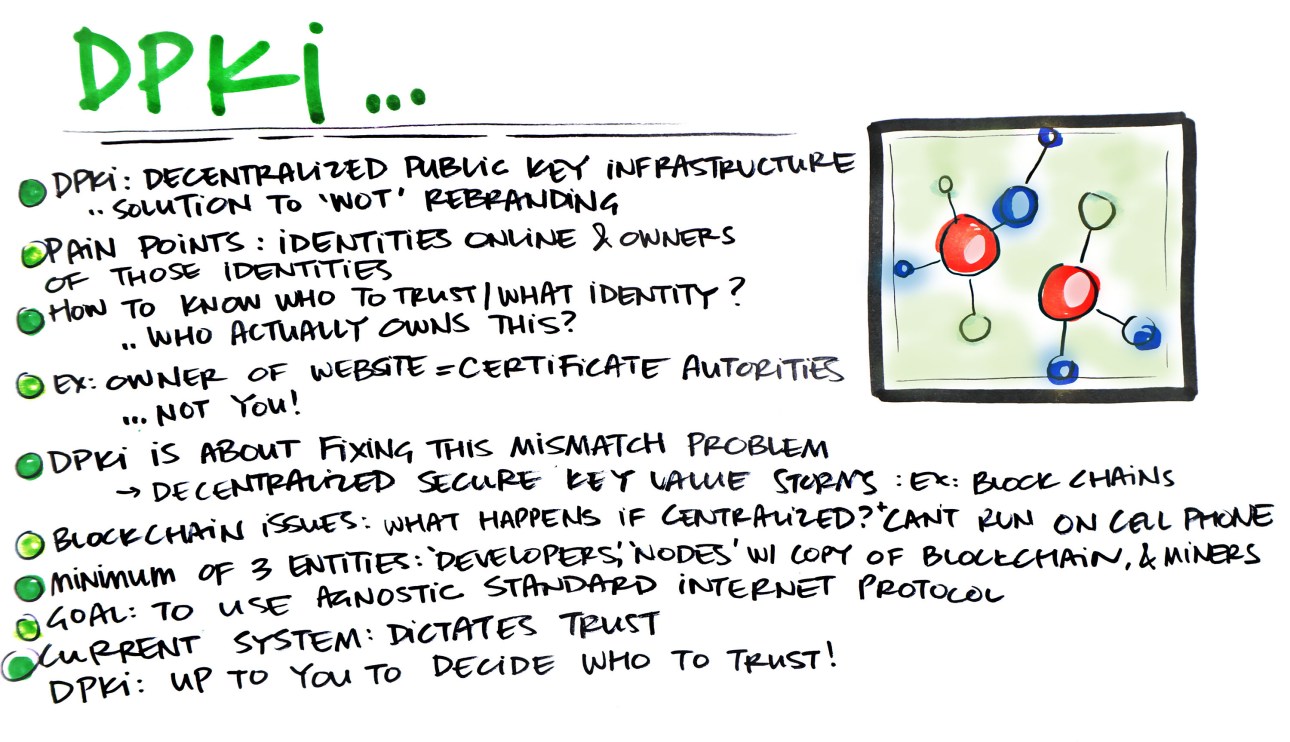 DPKi ...
DPKi: DECENTRALIZED PUBLIC KEY INFRASTRUCTURE
.. SOLUTION TO 'WOT' REBRANDING
PAIN POINTS: IDENTITIES ONLINE & OWNERS
OF THOSE IDENTITIES
HOW TO KNOW WHO TO TRUST/WHAT IDENTITY?
.. WHO ACTUALLY OWNS THIS?
EX: OWNER OF WEBSITE = CERTIFICATE AUTORITIES
... NOT YOU!
DPKi IS ABOUT FIXING THIS MISMATCH PROBLEM
→ DECENTRALIZED SECURE KEY VALUE : EX: BLOCK CHAINS
BLOCKCHAIN ISSUES: WHAT HAPPENS IF CENTRALIZED? + CANT RUN ON CELL PHONE
MINIMUM OF 3 ENTITIES: 'DEVELOPERS', 'NODES' W/ COPY OF BLOCKCHAIN, & MINERS
GOAL: TO USE AGNOSTIC STANDARD INTERNET PROTOCOL
CURRENT SYSTEM: DICTATES TRUST
DPKi: UP TO YOU TO DECIDE WHO TO TRUST!